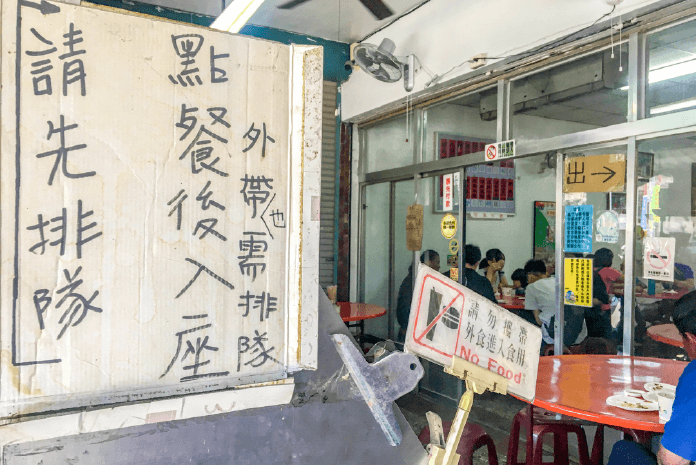 請先排隊
點餐後入座
外帶也需排隊
出→
請勿攜帶
外食進入食用
No Food